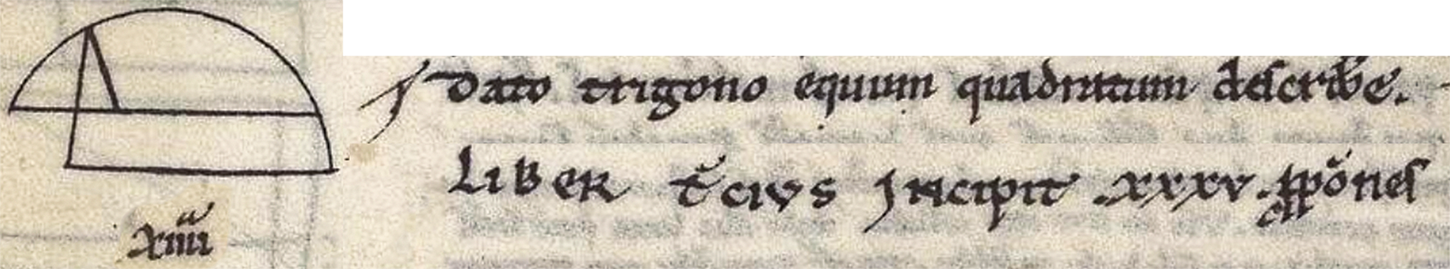 Dato trigono equum quadratum describ̄e.
LIBER t̄cius Incipit .xxxv. ꝓpōnes
xiiii^a